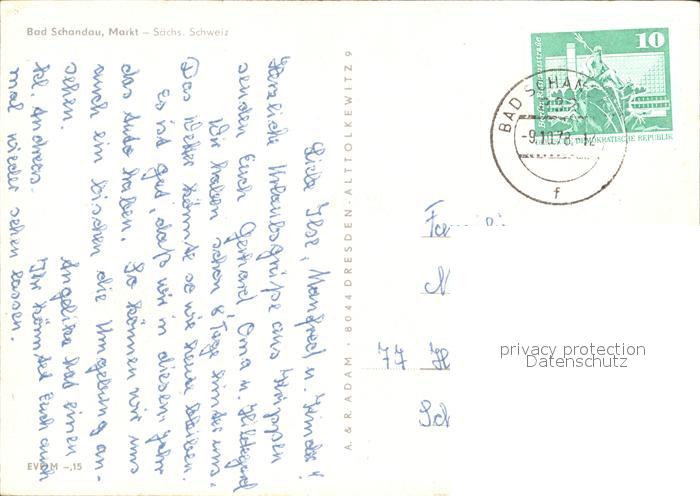 Bad Schandau, Markt – Sächs. Schweiz
Liebe Ilse, Manfred u. Kinder!
Herzliche Urlaubsgrüße aus Krippen
senden Euch Gerhard Oma u. Hildegard
Wir haben schon 8 Tage hinter uns.
Das Wetter könnte so wie heute bleiben.
Es ist gut, daß wir in diesem Jahr
das Auto haben. So können wir uns
auch ein bischen die Umgebung an-
sehen. Angelika hat einen
kl. Andreas.
Ihr könntet Euch auch
mal wieder sehen lassen.
EVP M –,15
A. & R. ADAM · 8044 DRESDEN-ALTTOLKEWITZ 9
10
DEMOKRATISCHE REPUBLIK
BAD SCHAN
-9.10.78
f
Fa
N
77 H
Sch
privacy protection
Datenschutz